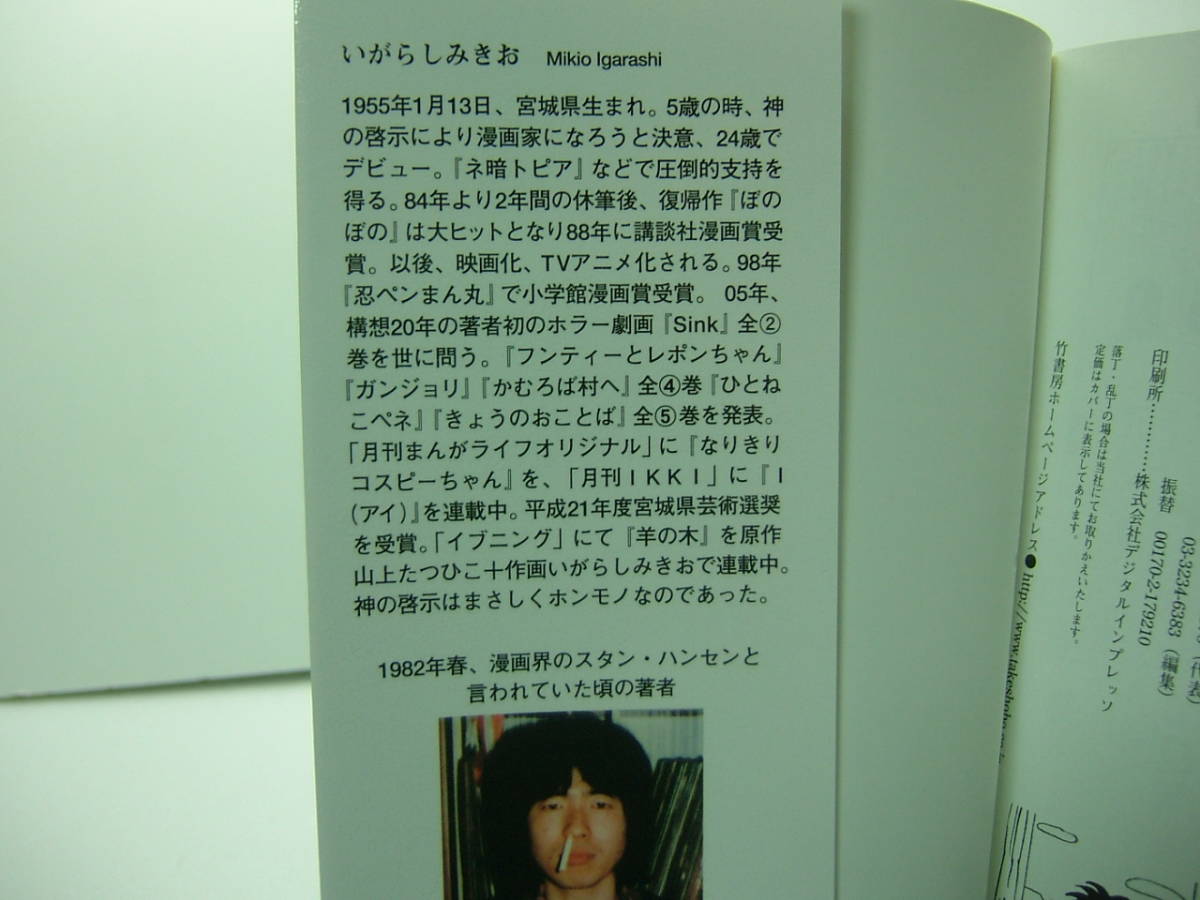 いがらしみきお Mikio Igarashi
1955年1月13日、宮城県生まれ。5歳の時、神
の啓示により漫画家になろうと決意、24歳で
デビュー。『ネ暗トピア』などで圧倒的支持を
得る。84年より2年間の休筆後、復帰作『ぼの
ぼの』は大ヒットとなり88年に講談社漫画賞受
賞。以後、映画化、TVアニメ化される。98年
『忍ペンまん丸』で小学館漫画賞受賞。 05年、
構想20年の著者初のホラー劇画『Sink』全②
巻を世に問う。『フンティーとレポンちゃん』
『ガンジョリ』『かむろば村へ』全④巻『ひとね
こペネ』『きょうのおことば』全⑤巻を発表。
「月刊まんがライフオリジナル」に『なりきり
コスピーちゃん』を、「月刊ＩＫＫＩ」に『Ｉ
(アイ)』を連載中。平成21年度宮城県芸術選奨
を受賞。「イブニング」にて『羊の木』を原作
山上たつひこ＋作画いがらしみきおで連載中。
神の啓示はまさしくホンモノなのであった。
1982年春、漫画界のスタン・ハンセンと
言われていた頃の著者
03-3234-6383（編集）
振替 00170-2-179210
印刷所…………株式会社デジタルインプレッソ
落丁・乱丁の場合は当社にてお取りかえいたします。
定価はカバーに表示してあります。
竹書房ホームページアドレス●http://www.takeshobo.co.